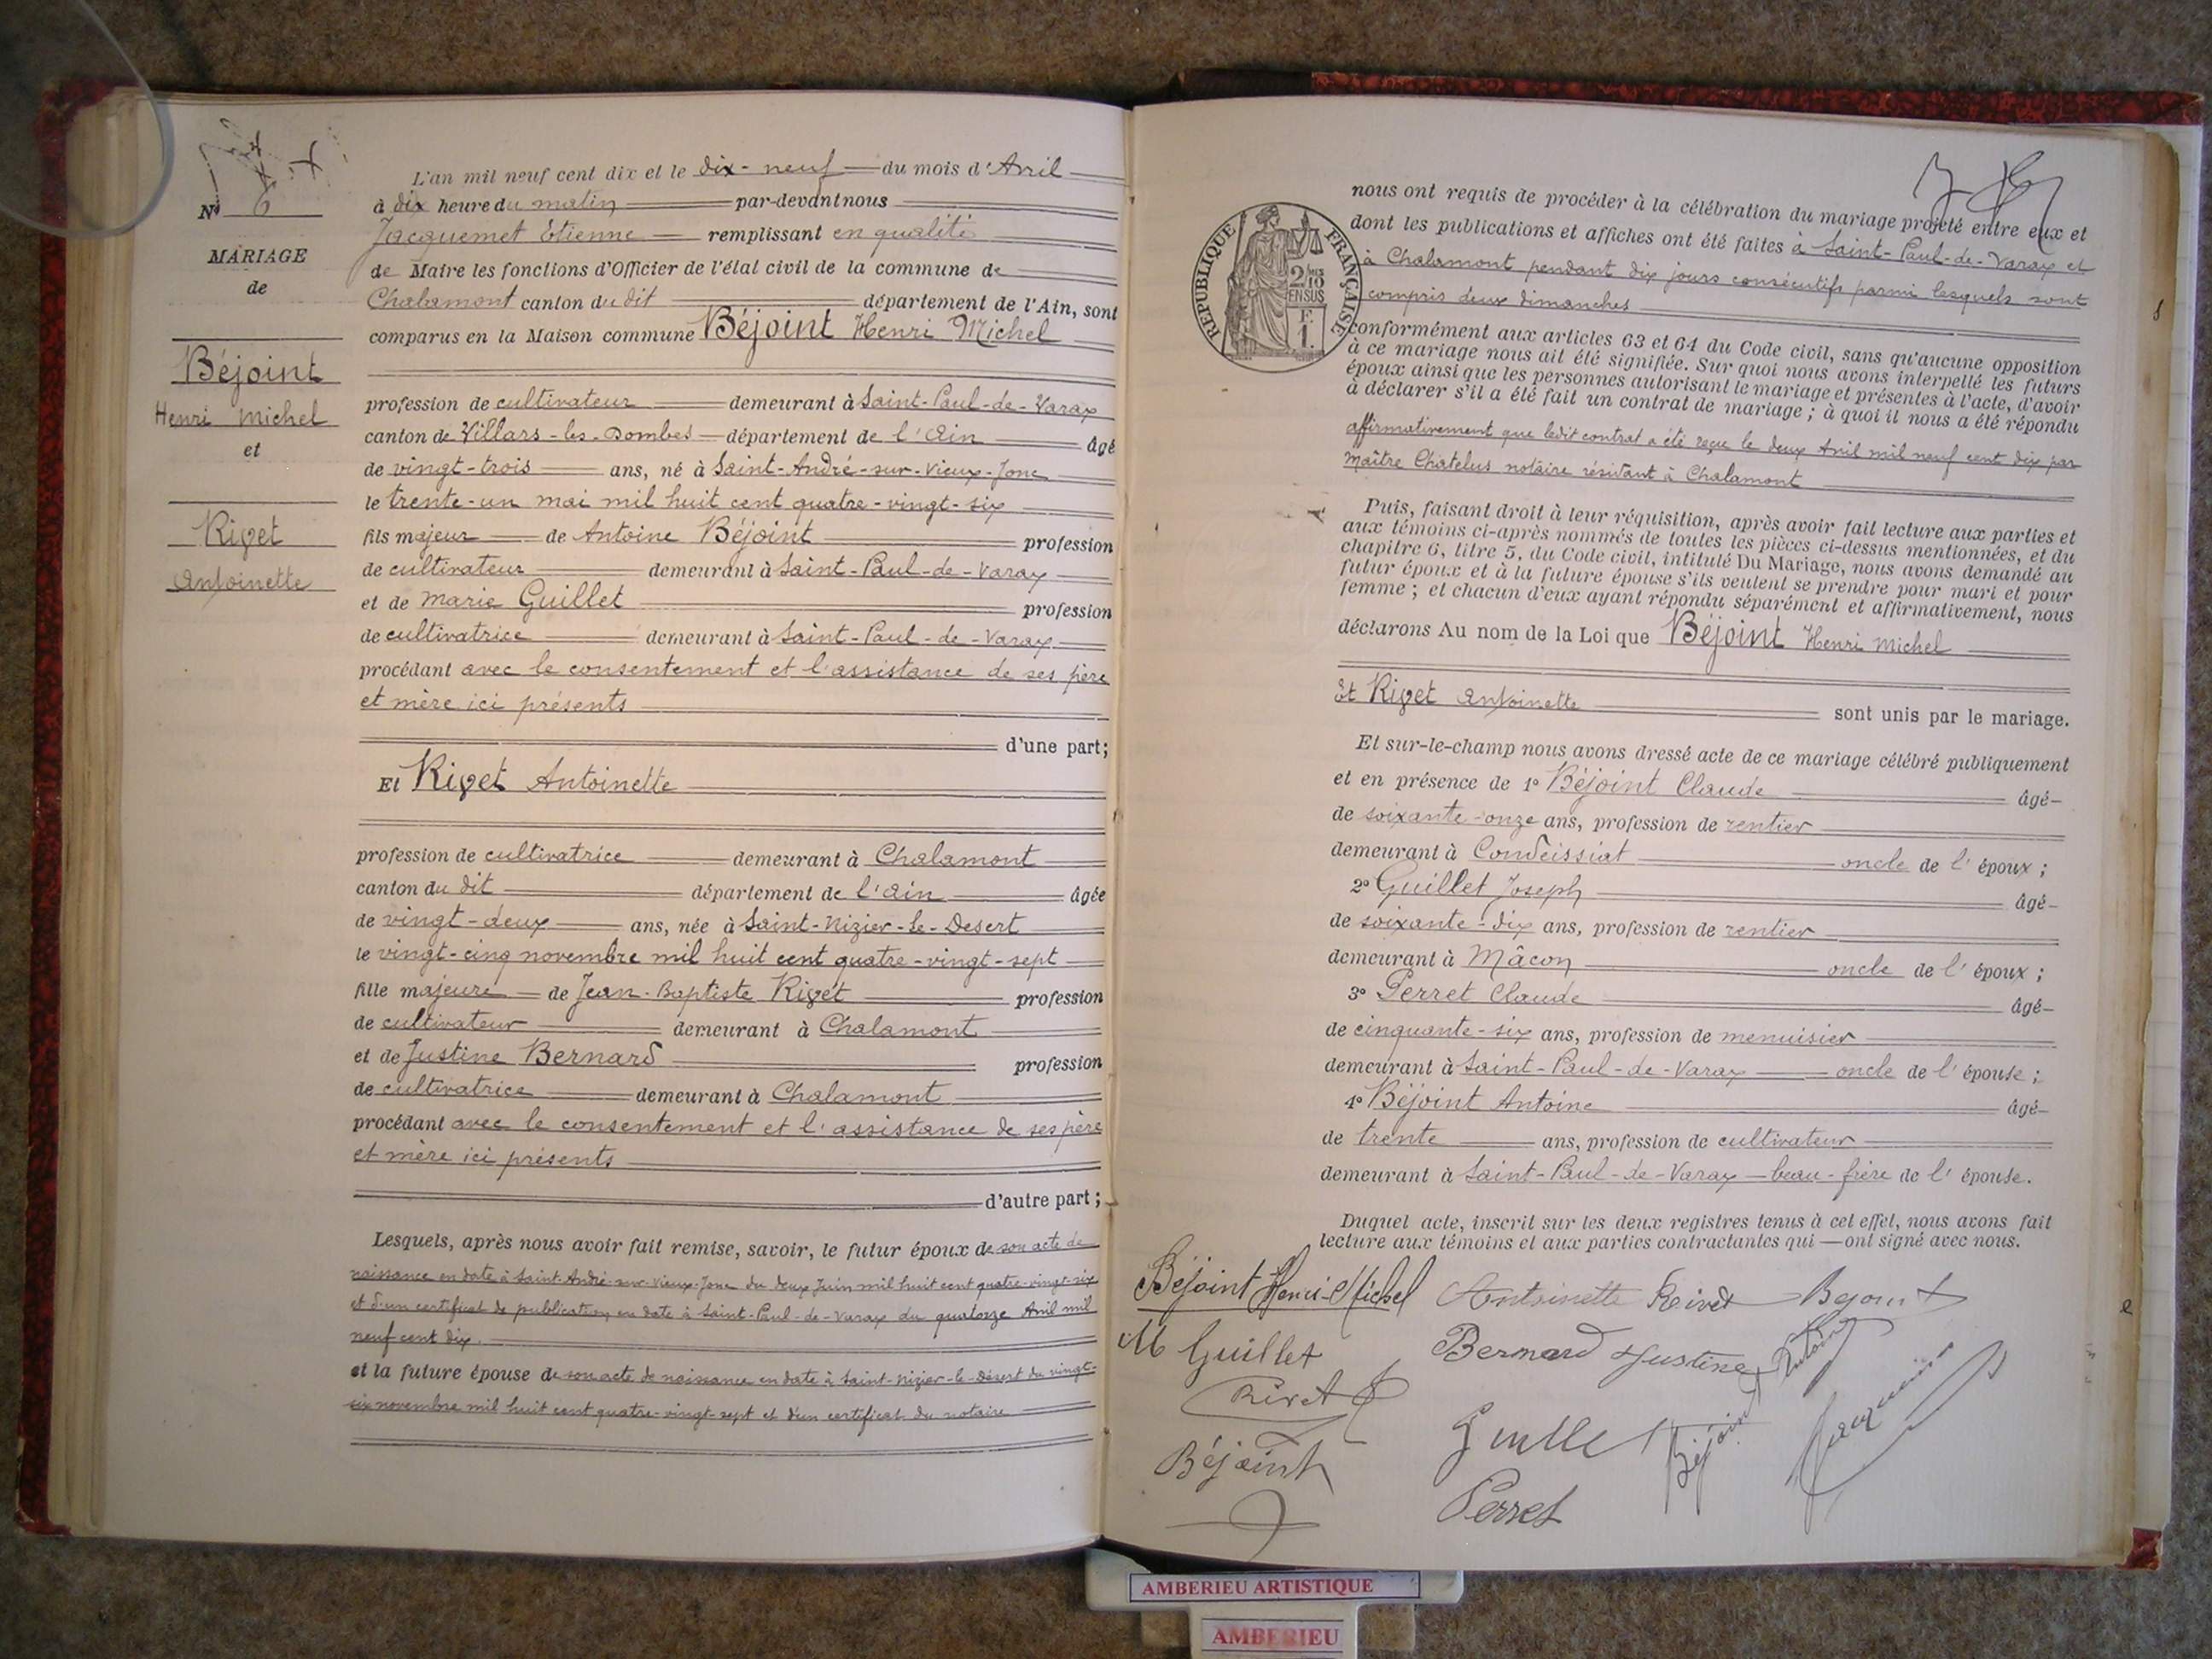 N° 6
MARIAGE
de
Béjoint
Henri Michel
et
Rivet
Antoinette
L'an mil neuf cent dix et le dix-neuf du mois d'Avril
à dix heure du matin par-devant nous
Jacquemet Etienne remplissant en qualité
de Maire les fonctions d'Officier de l'état civil de la commune de
Chalamont canton du dit département de l'Ain, sont
comparus en la Maison commune Béjoint Henri Michel
profession de cultivateur demeurant à Saint-Paul-de-Varax
canton de Villars-les-Dombes département de l'Ain âgé
de vingt-trois ans, né à Saint-André-sur-Vieux-Jonc
le trente-un mai mil huit cent quatre-vingt-six
fils majeur de Antoine Béjoint profession
de cultivateur demeurant à Saint-Paul-de-Varax
et de Marie Guillet profession
de cultivatrice demeurant à Saint-Paul-de-Varax
procédant avec le consentement et l'assistance de ses père
et mère ici présents
d'une part;
Et Rivet Antoinette
profession de cultivatrice demeurant à Chalamont
canton du dit département de l'Ain âgée
de vingt-deux ans, née à Saint-Nizier-le-Desert
le vingt-cinq novembre mil huit cent quatre-vingt-sept
fille majeure de Jean-Baptiste Rivet profession
de cultivateur demeurant à Chalamont
et de Justine Bernard profession
de cultivatrice demeurant à Chalamont
procédant avec le consentement et l'assistance de ses père
et mère ici présents
d'autre part;
Lesquels, après nous avoir fait remise, savoir, le futur époux de son acte de
naissance en date à Saint-André-sur-Vieux-Jonc du deux Juin mil huit cent quatre-vingt-six
et d'un certificat de publication en date à Saint-Paul-de-Varax du quatorze Avril mil
neuf cent dix.
et la future épouse de son acte de naissance en date à Saint-Nizier-le-Désert du vingt-
six novembre mil huit cent quatre-vingt-sept et d'un certificat du notaire
RÉPUBLIQUE FRANÇAISE
2/10
EN SUS
F.
1.
nous ont requis de procéder à la célébration du mariage projeté entre eux et
dont les publications et affiches ont été faites à Saint-Paul-de-Varax et
à Chalamont pendant dix jours consécutifs parmi lesquels sont
compris deux dimanches
conformément aux articles 63 et 64 du Code civil, sans qu'aucune opposition
à ce mariage nous ait été signifiée. Sur quoi nous avons interpellé les futurs
époux ainsi que les personnes autorisant le mariage et présentes à l'acte, d'avoir
à déclarer s'il a été fait un contrat de mariage; à quoi il nous a été répondu
affirmativement que ledit contrat a été reçu le deux Avril mil neuf cent dix par
Maître Chatelus notaire résidant à Chalamont
Puis, faisant droit à leur réquisition, après avoir fait lecture aux parties et
aux témoins ci-après nommés de toutes les pièces ci-dessus mentionnées, et du
chapitre 6, titre 5, du Code civil, intitulé Du Mariage, nous avons demandé au
futur époux et à la future épouse s'ils veulent se prendre pour mari et pour
femme; et chacun d'eux ayant répondu séparément et affirmativement, nous
déclarons Au nom de la Loi que Béjoint Henri Michel
Et Rivet Antoinette sont unis par le mariage.
Et sur-le-champ nous avons dressé acte de ce mariage célébré publiquement
et en présence de 1° Béjoint Claude âgé
de soixante-onze ans, profession de rentier
demeurant à Condeissiat oncle de l'époux;
2° Guillet Joseph âgé
de soixante-dix ans, profession de rentier
demeurant à Mâcon oncle de l'époux;
3° Perret Claude âgé
de cinquante-six ans, profession de menuisier
demeurant à Saint-Paul-de-Varax oncle de l'épouse;
4° Béjoint Antoine âgé
de trente ans, profession de cultivateur
demeurant à Saint-Paul-de-Varax beau-frère de l'épouse.
Duquel acte, inscrit sur les deux registres tenus à cet effet, nous avons fait
lecture aux témoins et aux parties contractantes qui ont signé avec nous.
Béjoint Henri-Michel Antoinette Rivet Bejoint
M Guillet Bernard Justine
Rivet
Béjoint Antoine
Guillet
Béjoint
Perret
AMBERIEU ARTISTIQUE
AMBERIEU